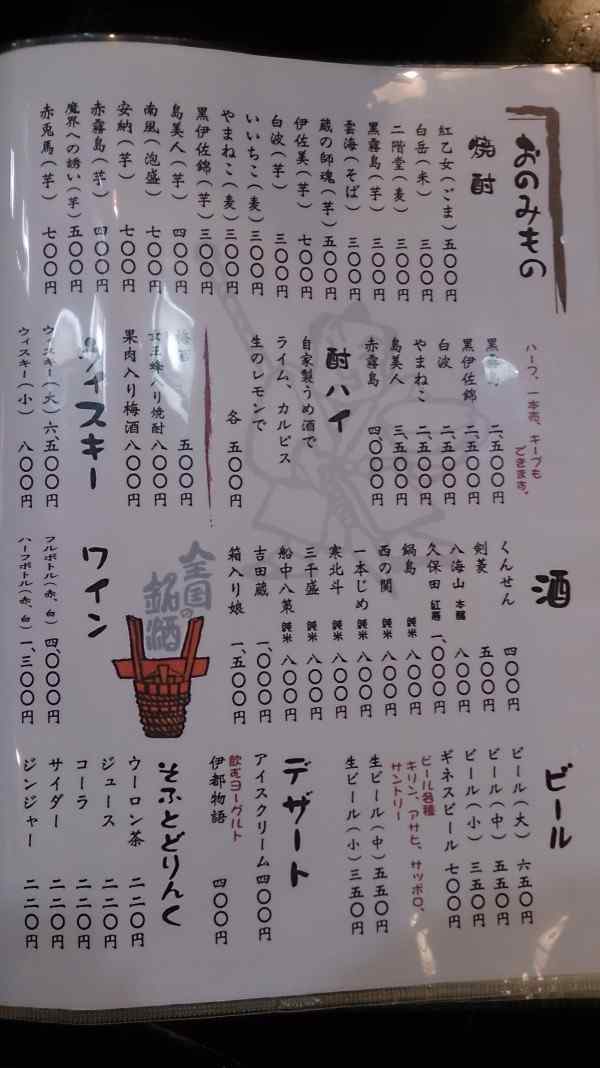 おのみもの
焼酎
紅乙女（ごま）五〇〇円
白岳（米）三〇〇円
二階堂（麦）三〇〇円
黒霧島（芋）三〇〇円
雲海（そば）三〇〇円
蔵の師魂（芋）五〇〇円
伊佐美（芋）七〇〇円
白波（芋）三〇〇円
いいちこ（麦）三〇〇円
やまねこ（麦）三〇〇円
黒伊佐錦（芋）三〇〇円
島美人（芋）四〇〇円
南風（泡盛）七〇〇円
安納（芋）七〇〇円
赤霧島（芋）四〇〇円
魔界への誘い（芋）五〇〇円
赤兎馬（芋）七〇〇円
ハーフ、一本売、キープも
できます。
黒霧島 二、五〇〇円
黒伊佐錦 二、五〇〇円
白波 二、五〇〇円
やまねこ 二、五〇〇円
島美人 三、五〇〇円
赤霧島 四、〇〇〇円
酎ハイ
自家製うめ酒で
ライム、カルピス
生のレモンで
各 五〇〇円
梅酒 五〇〇円
女王蜂入り焼酎 八〇〇円
果肉入り梅酒 八〇〇円
ウィスキー
ウィスキー（大）六、五〇〇円
ウィスキー（小）八〇〇円
酒
くんせん 四〇〇円
剣菱 五〇〇円
八海山 本醸 八〇〇円
久保田 紅寿 一、〇〇〇円
鍋島 純米 八〇〇円
西の関 純米 八〇〇円
一本じめ 純米 八〇〇円
寒北斗 純米 八〇〇円
三千盛 純米 八〇〇円
船中八策 純米 八〇〇円
吉田蔵 一、〇〇〇円
箱入り娘 一、五〇〇円
全国の銘酒
ワイン
フルボトル（赤、白）四、〇〇〇円
ハーフボトル（赤、白）一、三〇〇円
ビール
ビール（大）六五〇円
ビール（中）五五〇円
ビール（小）三五〇円
ギネスビール 七〇〇円
ビール各種
キリン、アサヒ、サッポロ、
サントリー
生ビール（中）五五〇円
生ビール（小）三五〇円
デザート
アイスクリーム 四〇〇円
飲むヨーグルト
伊都物語 四〇〇円
そふとどりんく
ウーロン茶 二二〇円
ジュース 二二〇円
コーラ 二二〇円
サイダー 二二〇円
ジンジャー 二二〇円